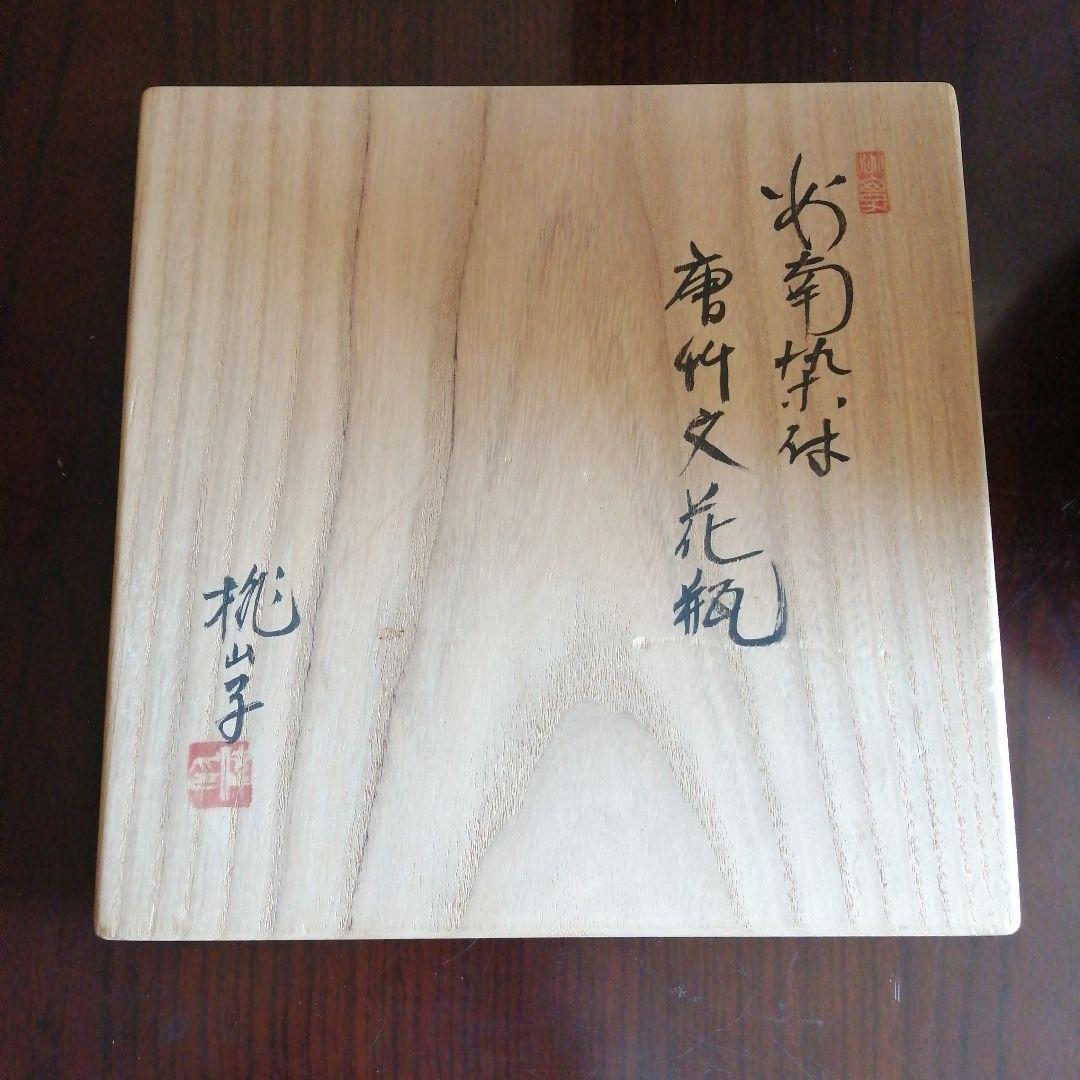 南染付
唐竹文花瓶
桃山子